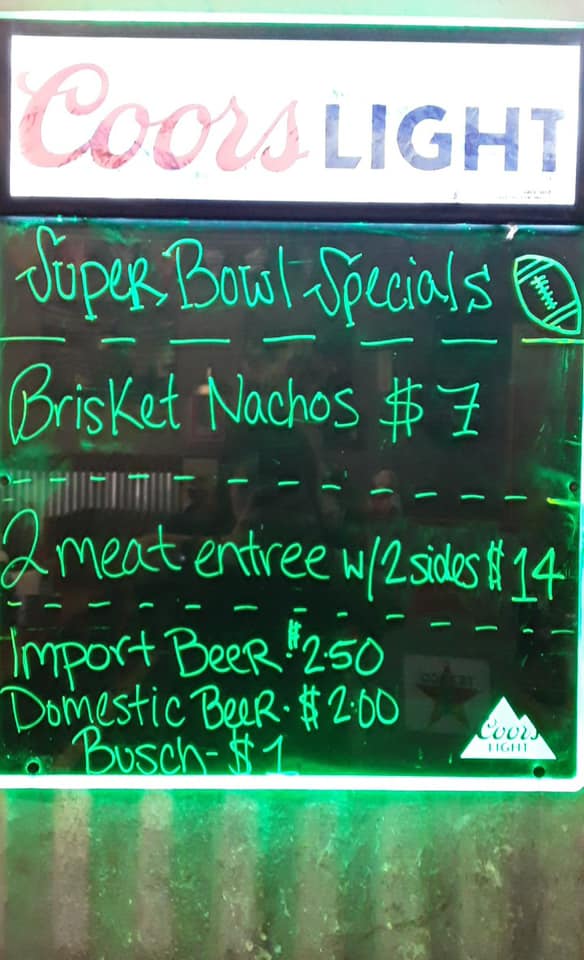 Coors LIGHT
Super Bowl Specials
Brisket Nachos $7
2 meat entree w/2 sides $14
Import Beer. $2.50
Domestic Beer. $2.00
Busch - $1
Coors
LIGHT